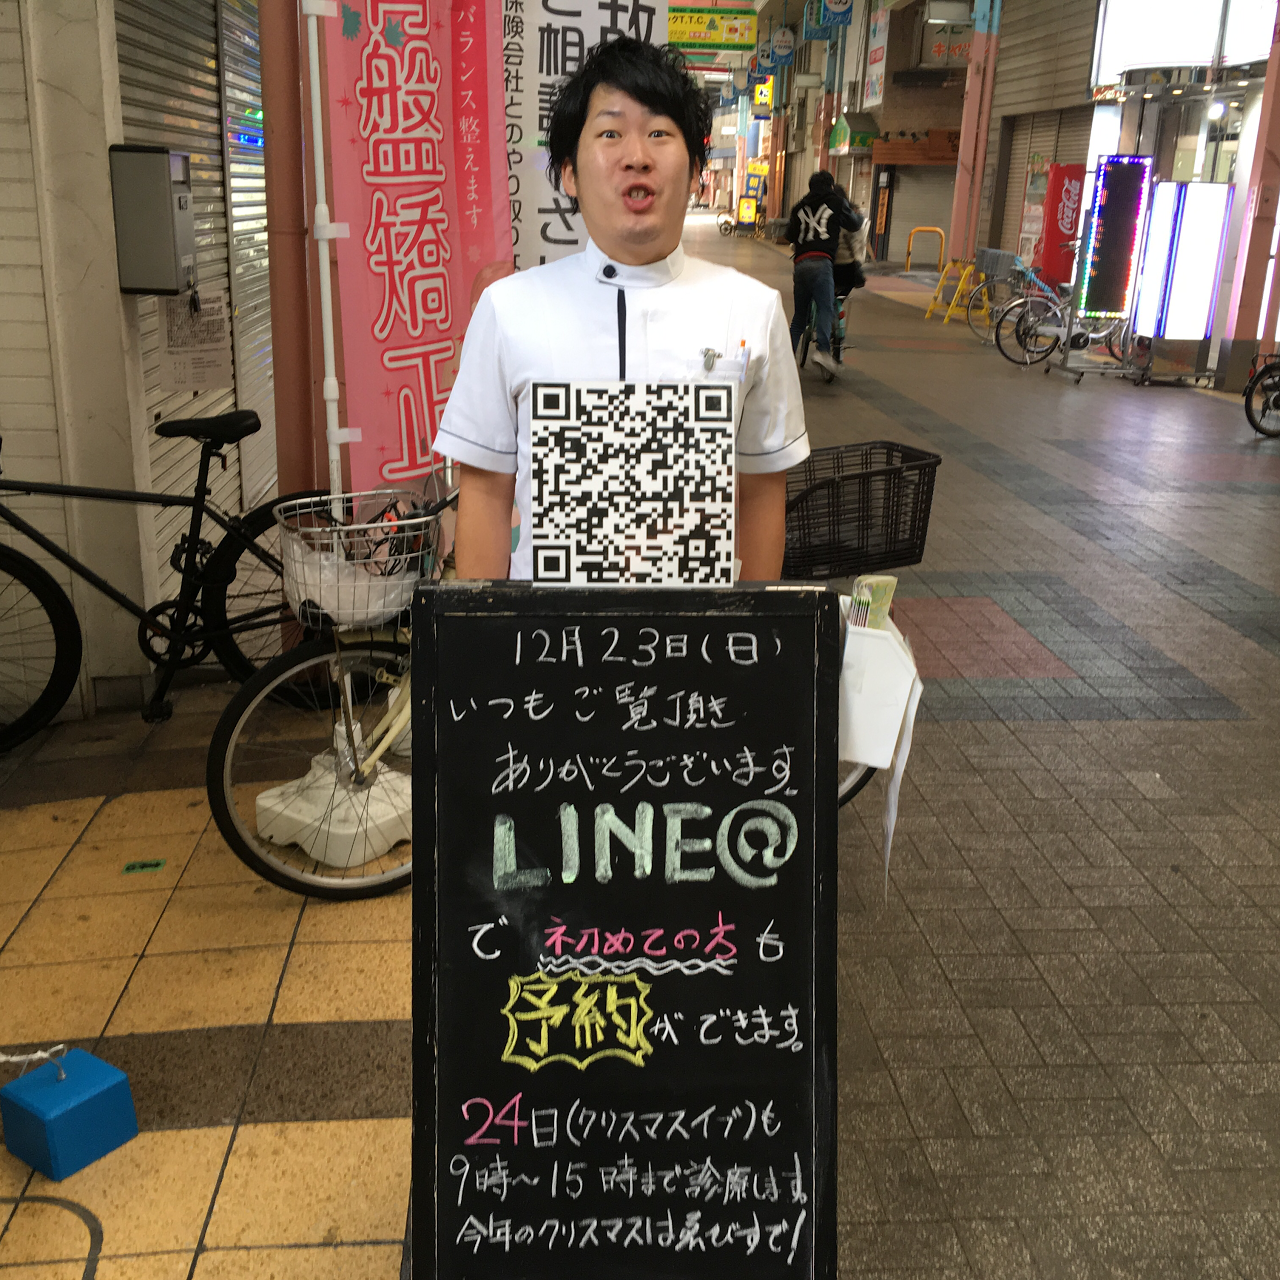 骨盤矯正
バランス整えます
保険会社とのやり取り
ご相談
故
T.T.C.
NY
Coca-Cola
12月23日(日)
いつもご覧頂き
ありがとうございます。
LINE@
で 初めての方も
予約ができます。
24日(クリスマスイブ)も
9時〜15時まで診療します。
今年のクリスマスは喜びすで!